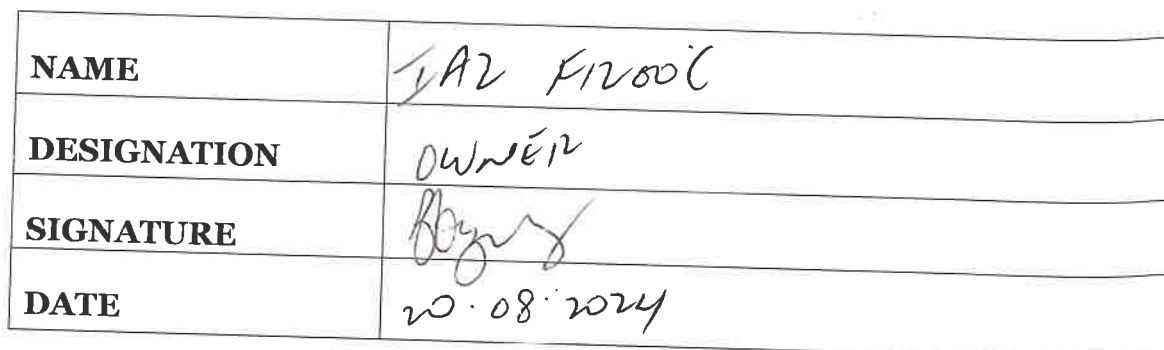 NAME
DESIGNATION OWNER
SIGNATURE
DATE 20.08.2024